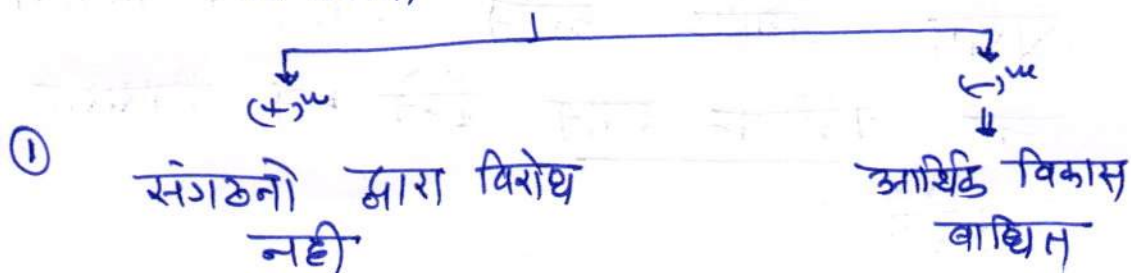 (+)ve
(-)ve
①
संगठनो द्वारा विरोध
नही
आर्थिक विकास
बाधित